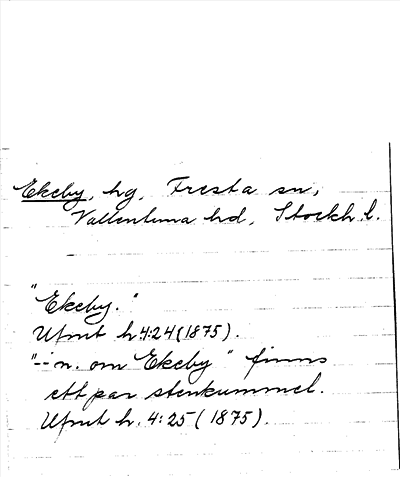 Ekeby, hg, Fresta sn,
Vallentuna hd, Stockh. l.
"Ekeby."
Ufmt h 4:24 (1875).
"--n. om Ekeby" finns
ett par stenkummel.
Ufmt h. 4:25 (1875).